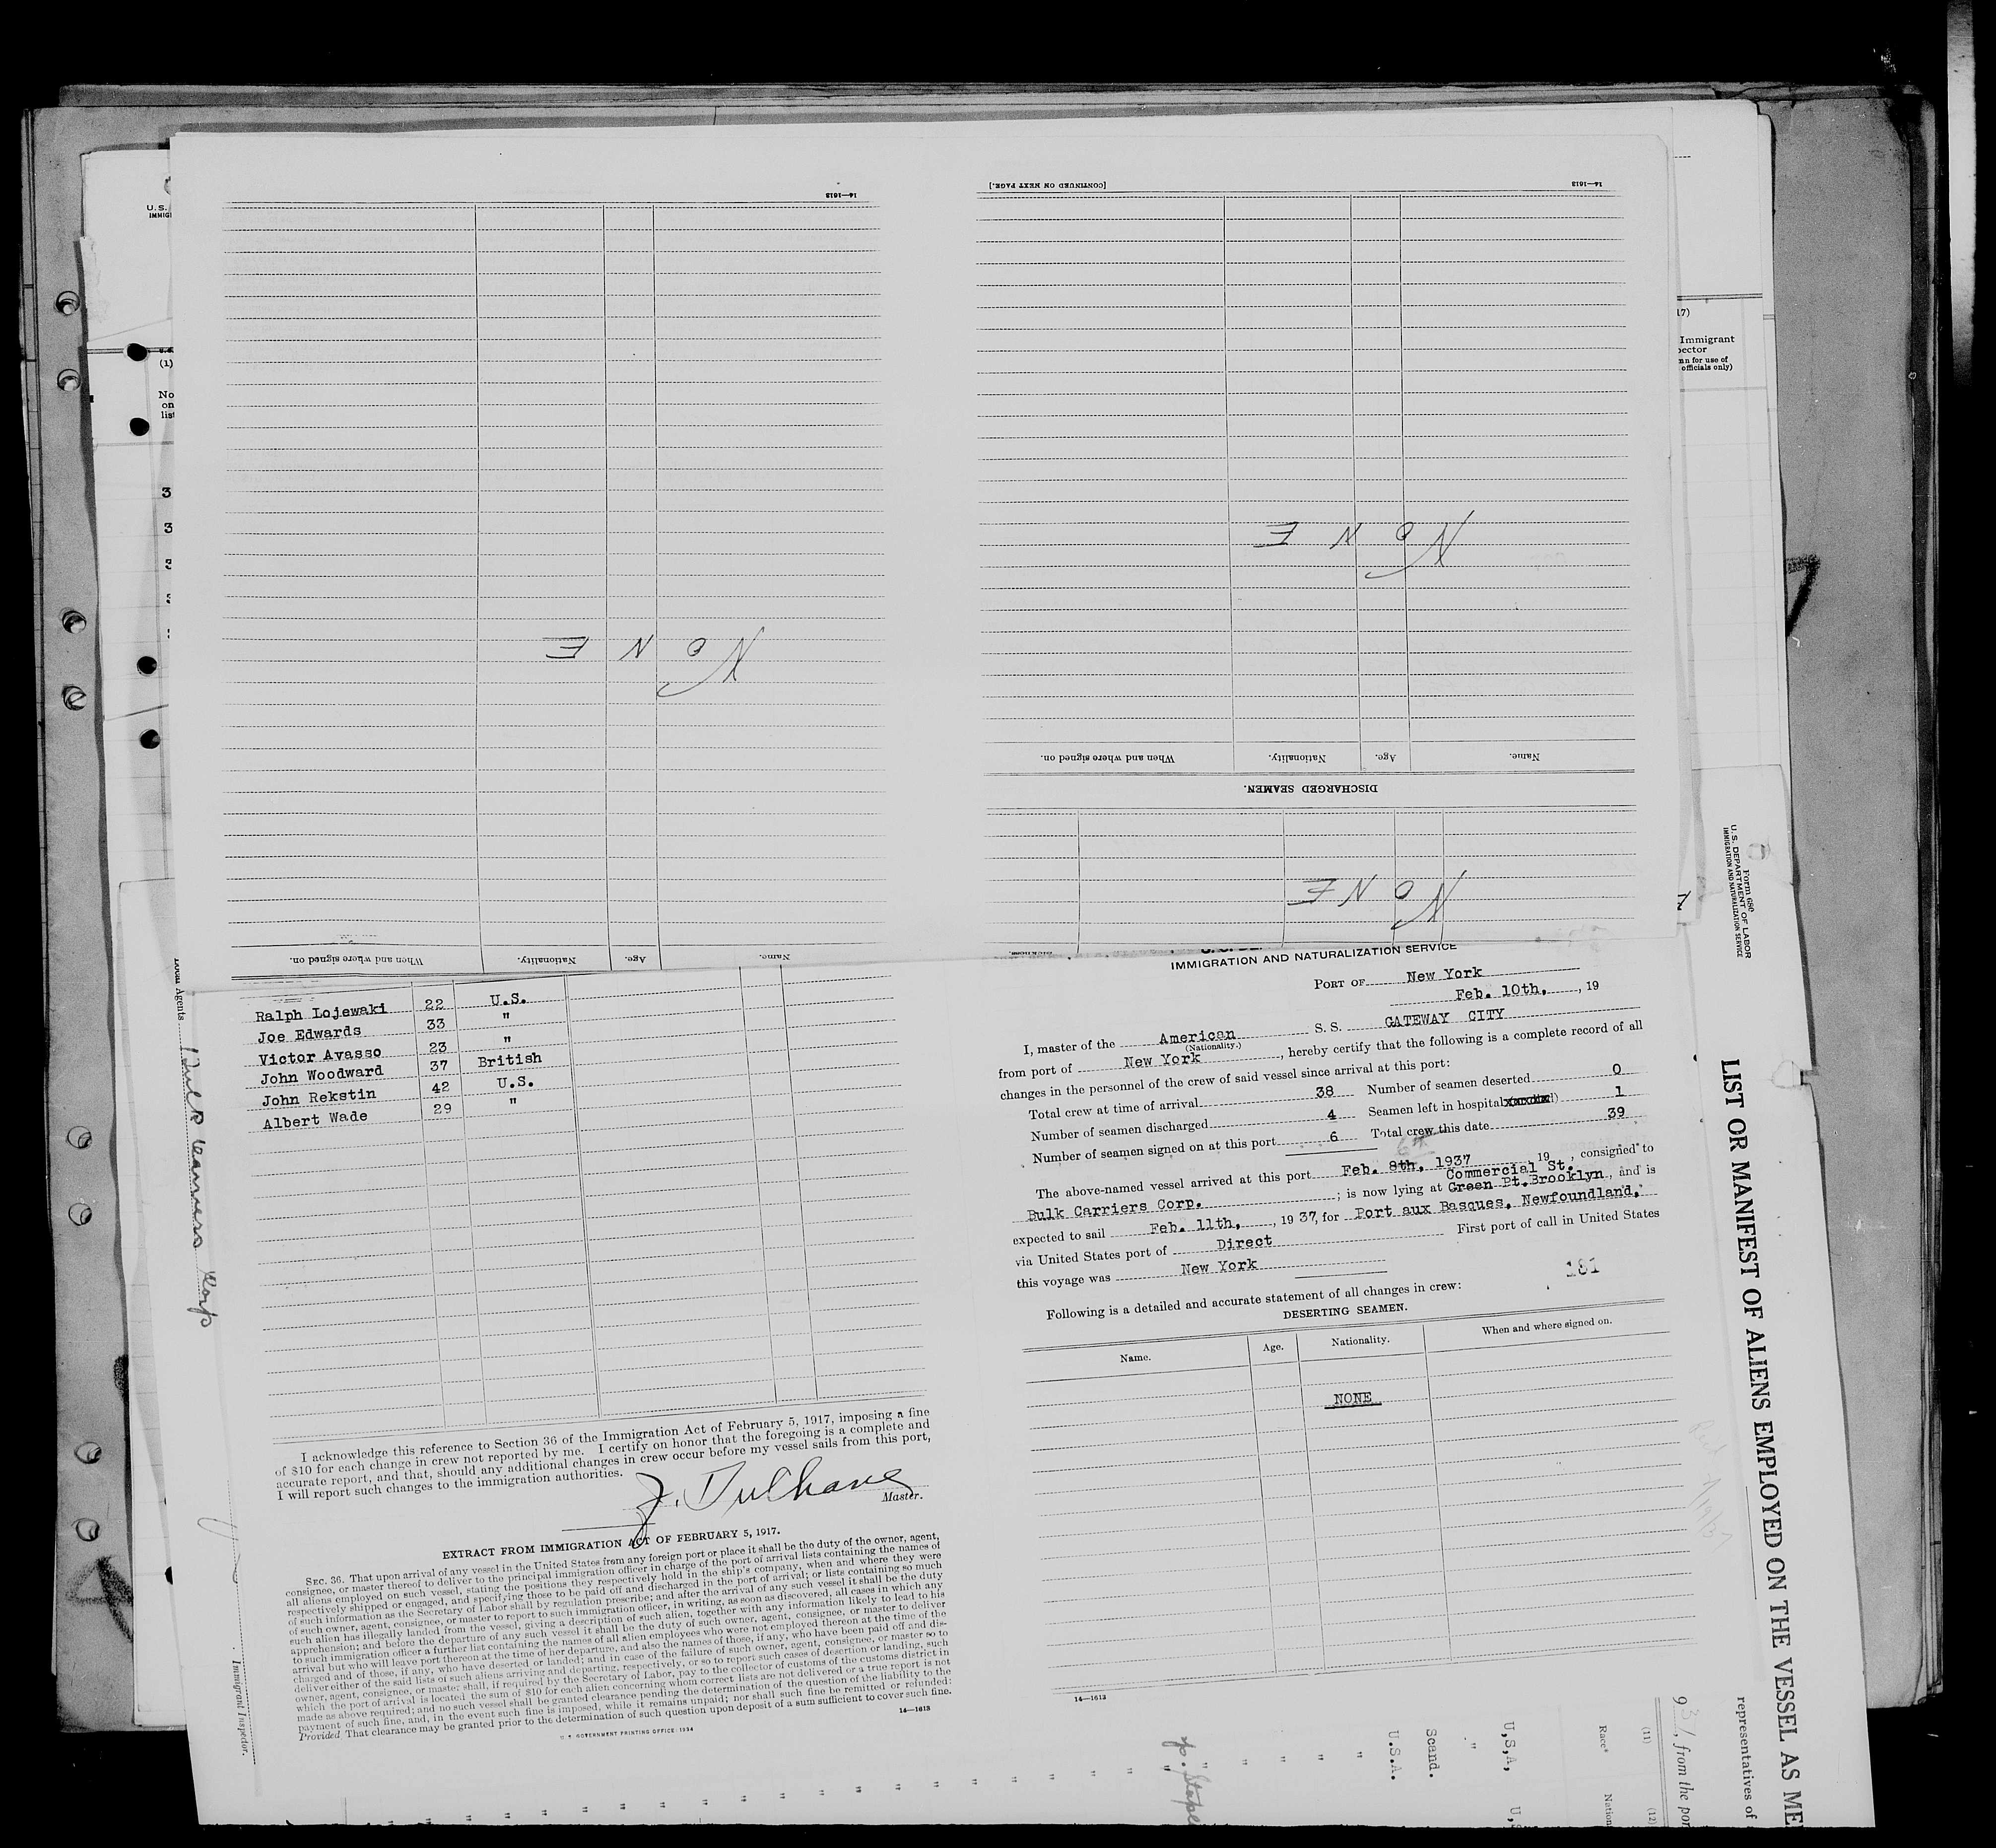 [CONTINUED ON NEXT PAGE.]
14—1613
14—1613
N O N E
N O N E
Name.
Age.
Nationality.
When and where signed on.
DISCHARGED SEAMEN.
N O N E
Name.
Age.
Nationality.
When and where signed on.
Ralph Lojewaki 22 U.S.
Joe Edwards 33 "
Victor Avasso 23 "
John Woodward 37 British
John Rekstin 42 U.S.
Albert Wade 29 "
I acknowledge this reference to Section 36 of the Immigration Act of February 5, 1917, imposing a fine
of $10 for each change in crew not reported by me. I certify on honor that the foregoing is a complete and
accurate report, and that, should any additional changes in crew occur before my vessel sails from this port,
I will report such changes to the immigration authorities.
Master.
EXTRACT FROM IMMIGRATION ACT OF FEBRUARY 5, 1917.
SEC. 36. That upon arrival of any vessel in the United States from any foreign port or place it shall be the duty of the owner, agent,
consignee, or master thereof to deliver to the principal immigration officer in charge of the port of arrival lists containing the names of
all aliens employed on such vessel, stating the positions they respectively hold in the ship's company, when and where they were
respectively shipped or engaged, and specifying those to be paid off and discharged in the port of arrival; or lists containing so much
of such information as the Secretary of Labor shall by regulation prescribe; and after the arrival of any such vessel it shall be the duty
of such owner, agent, consignee, or master to report to such immigration officer, in writing, as soon as discovered, all cases in which any
such alien has illegally landed from the vessel, giving a description of such alien, together with any information likely to lead to his
apprehension; and before the departure of any such vessel it shall be the duty of such owner, agent, consignee, or master to deliver
to such immigration officer a further list containing the names of all alien employees who were not employed thereon at the time of the
arrival but who will leave port thereon at the time of her departure, and also the names of those, if any, who have been paid off and dis-
charged and of those, if any, who have deserted or landed; and in case of the failure of such owner, agent, consignee, or master so to
deliver either of the said lists of such aliens arriving and departing, respectively, or so to report such cases of desertion or landing, such
owner, agent, consignee, or master shall, if required by the Secretary of Labor, pay to the collector of customs of the customs district in
which the port of arrival is located the sum of $10 for each alien concerning whom correct lists are not delivered or a true report is not
made as above required; and no such vessel shall be granted clearance pending the determination of the question of the liability to the
payment of such fine, and, in the event such fine is imposed, while it remains unpaid; nor shall such fine be remitted or refunded:
Provided That clearance may be granted prior to the determination of such question upon deposit of a sum sufficient to cover such fine.
14—1613
U. S. GOVERNMENT PRINTING OFFICE: 1934
IMMIGRATION AND NATURALIZATION SERVICE
PORT OF New York
Feb. 10th, , 19
I, master of the American S. S. GATEWAY CITY
(Nationality.)
from port of New York , hereby certify that the following is a complete record of all
changes in the personnel of the crew of said vessel since arrival at this port:
Total crew at time of arrival 38 Number of seamen deserted 0
Number of seamen discharged 4 Seamen left in hospital 1
Number of seamen signed on at this port 6 Total crew this date 39
The above-named vessel arrived at this port Feb. 8th, 1937 19 , consigned to
Commercial St.
Bulk Carriers Corp. ; is now lying at Green Pt. Brooklyn , and is
expected to sail Feb. 11th, , 19 37, for Port aux Basques, Newfoundland,
via United States port of Direct First port of call in United States
this voyage was New York
181
Following is a detailed and accurate statement of all changes in crew:
DESERTING SEAMEN.
Name. Age. Nationality. When and where signed on.
NONE
14—1613
Form 680
U. S. DEPARTMENT OF LABOR
IMMIGRATION AND NATURALIZATION SERVICE
LIST OR MANIFEST OF ALIENS EMPLOYED ON THE VESSEL AS ME
representatives of
, from the por
(11) (12)
Race* Nation
U,S,A, U,
"
Scand.
U.S.A.
Agents
Bulk Carriers Corp
Immigrant Inspector.
U. S.
IMMIG
(1)
No
on
list
17)
Immigrant
officials only)